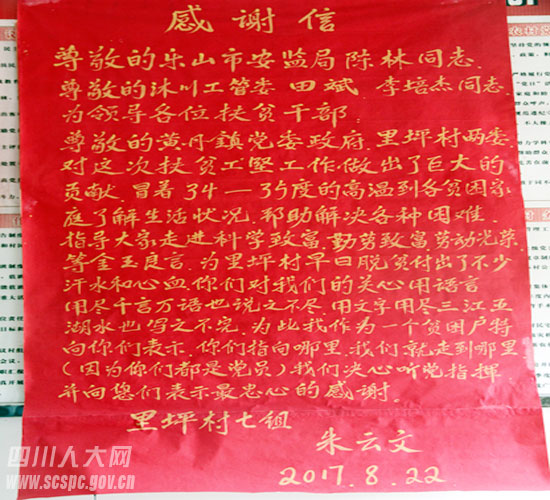 感谢信
尊敬的乐山市安监局陈林同志.
尊敬的沐川工管委 田斌 李培杰同志
为领导各位扶贫干部.
尊敬的黄丹镇党委政府.里坪村两委
对这次扶贫工坚工作做出了巨大的
贡献.冒着34—35度的高温到各贫困家
庭了解生活状况.帮助解决各种困难.
指导大家走进科学致富.勤劳致富劳动光荣
等金玉良言.为里坪村早日脱贫付出了不少
汗水和心血.你们对我们的关心用语言
用尽千言万语也说之不尽.用文字用尽三江五
湖水也写之不完.为此我作为一个贫困户特
向你们表示.你们指向哪里.我们就走到哪里
(因为你们都是党员)我们决心听党指挥
并向您们表示最忠心的感谢.
里坪村七组
朱云文
2017.8.22
四川人大网
www.scspc.gov.cn